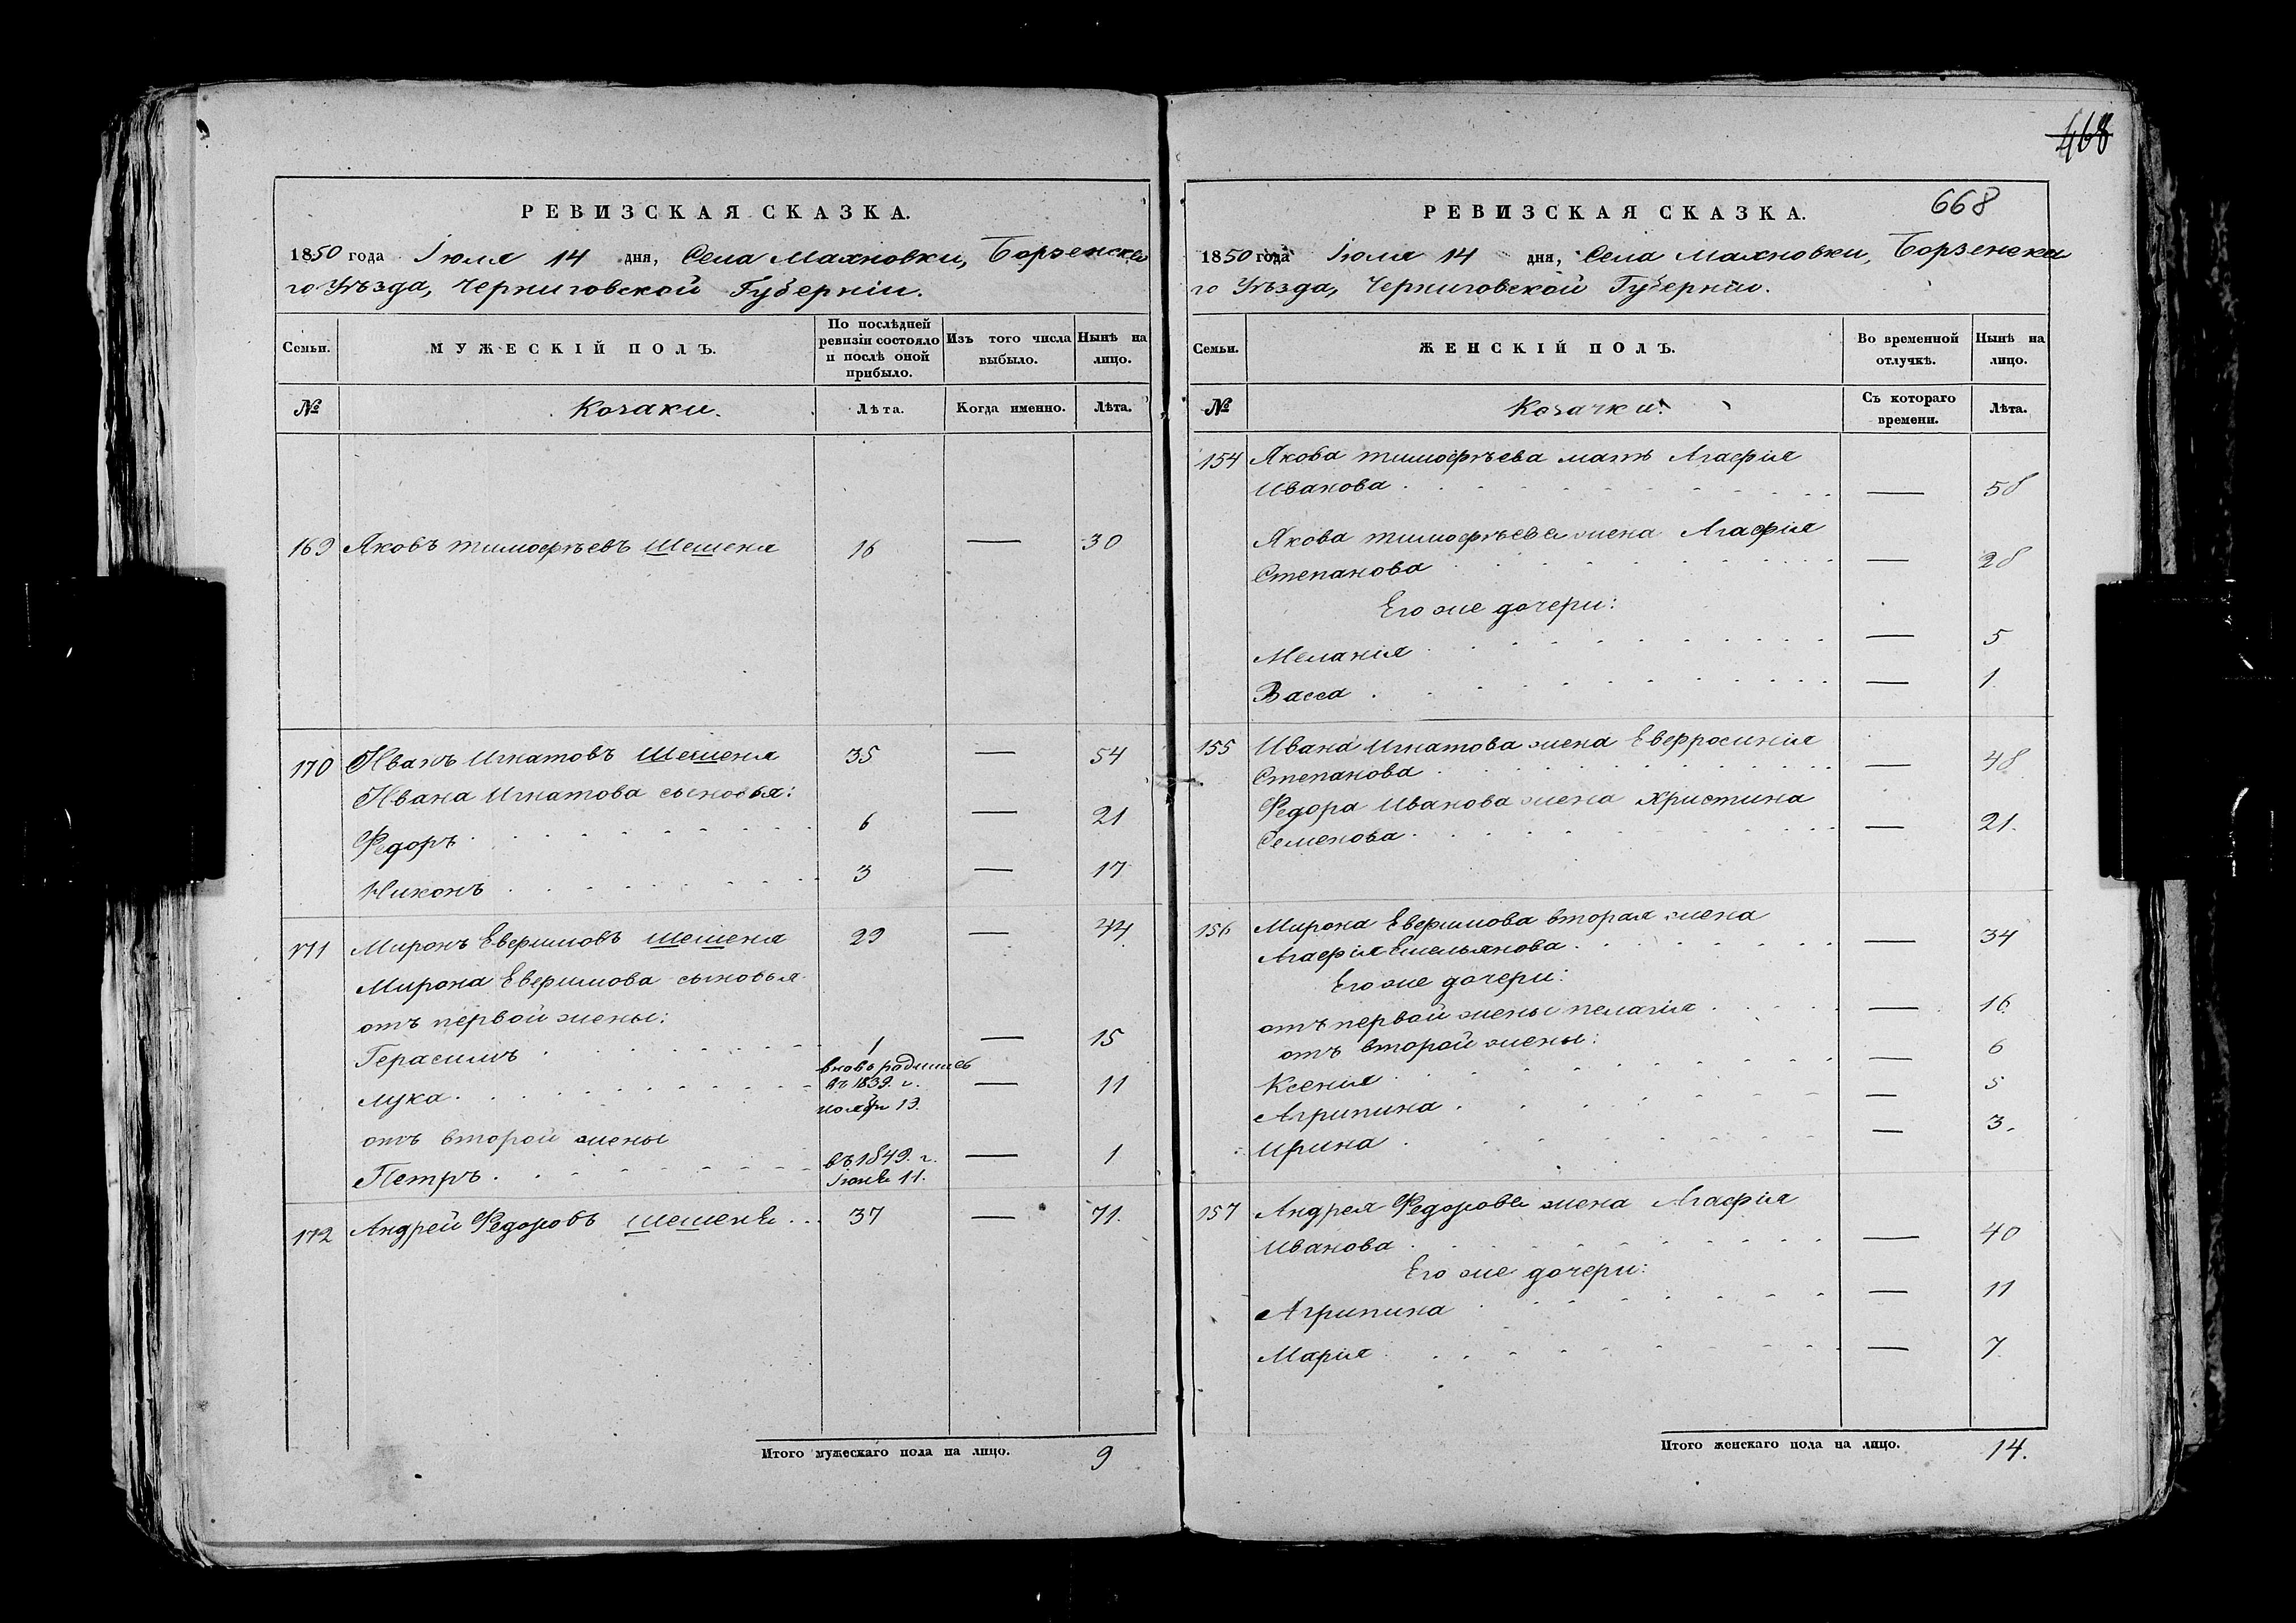 468
РЕВИЗСКАЯ СКАЗКА.
1850 года Іюля 14 дня, Села Махновки, Борзенска
го Уѣзда, Черниговской Губерніи.
Семьи.
МУЖЕСКІЙ ПОЛЪ.
По послѣдней
ревизіи состояло
и послѣ оной
прибыло.
Изъ того числа
выбыло.
Нынѣ на
лицо.
№
Козаки.
Лѣта.
Когда именно.
Лѣта.
169 Яковъ Тимофѣевъ Шешеня 16 — 30
170 Иванъ Игнатовъ Шешеня 35 — 54
Ивана Игнатова сыновья:
Федоръ 6 — 21
Никонъ 3 — 17
171 Миронъ Евфимовъ Шешеня 29 — 44
Мирона Евфимова сыновья
отъ первой жены:
Герасимъ 1 — 15
вновь родились
Лука въ 1839. г. — 11
ноября 13.
отъ второй жены
Петръ въ 1849. г. — 1
Іюня 11.
172 Андрей Федоровъ Шешеня 37 — 71.
Итого мужескаго пола на лицо. 9
РЕВИЗСКАЯ СКАЗКА.
668
1850 года Іюля 14 дня, Села Махновки, Борзенска
го Уѣзда, Черниговской Губерніи.
Семьи.
ЖЕНСКІЙ ПОЛЪ.
Во временной
отлучкѣ.
Нынѣ на
лицо.
№
Козачки.
Съ котораго
времени.
Лѣта.
154 Якова Тимофѣева мать Агафія
Иванова — 58
Якова Тимофѣева жена Агафія
Степанова — 28
Его же дочери:
Меланія — 5
Васса — 1.
155 Ивана Игнатова жена Евфросинія
Степанова — 48
Федора Иванова жена Христина
Семенова — 21.
156 Мирона Евфимова вторая жена
Агафія Емельянова — 34
Его же дочери:
отъ первой жены Пелагія — 16
отъ второй жены:
Ксенія — 6
Агрипина — 5
Ирина — 3.
157 Андрея Федорова жена Агафія
Иванова — 40
Его же дочери:
Агрипина — 11
Марія — 7.
Итого женскаго пола на лицо. 14.